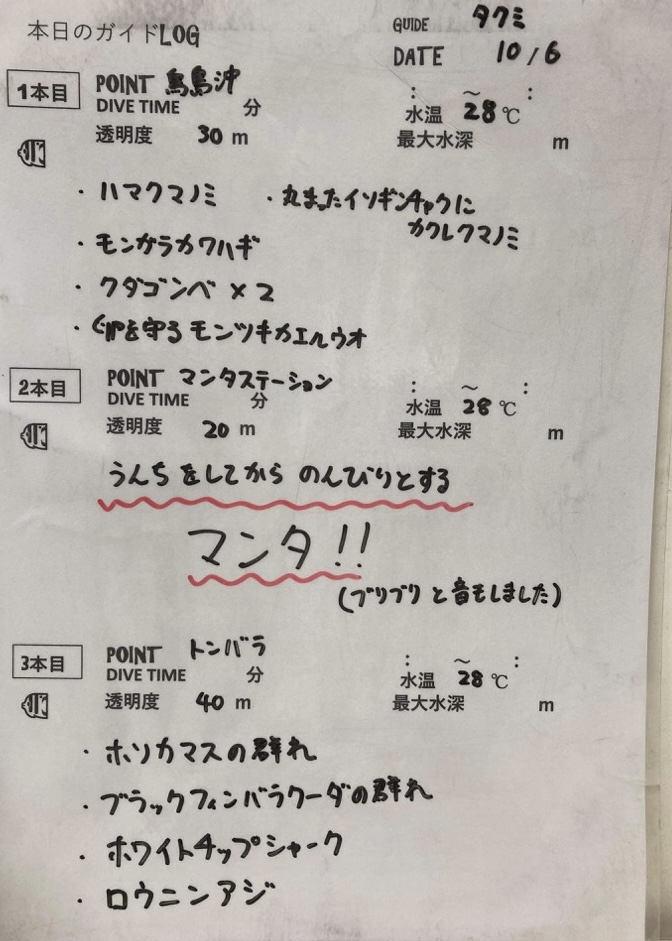 本日のガイドLOG
GUIDE タクミ
DATE 10/6
1本目 POINT 鳥島沖
DIVE TIME 分 : ～ :
水温 28℃
透明度 30 m 最大水深 m
・ハマクマノミ ・丸まったイソギンチャクに
カクレクマノミ
・モンガラカワハギ
・クダゴンベ×2
・卵を守るモンツキカエルウオ
2本目 POINT マンタステーション
DIVE TIME 分 : ～ :
水温 28℃
透明度 20 m 最大水深 m
うんちをしてからのんびりとする
マンタ!!
(ブリブリと音もしました)
3本目 POINT トンバラ
DIVE TIME 分 : ～ :
水温 28℃
透明度 40 m 最大水深 m
・ホソカマスの群れ
・ブラックフィンバラクーダの群れ
・ホワイトチップシャーク
・ロウニンアジ